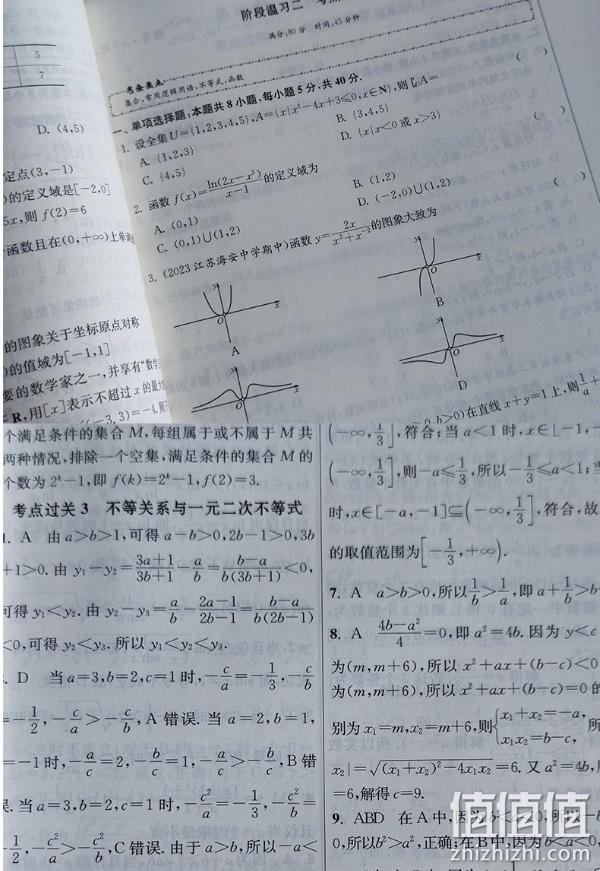 阶段温习二 考点
满分:80分 时间:45分钟
考查要点
集合,常用逻辑用语,不等式,函数
一、单项选择题:本题共8小题,每小题5分,共40分.
1. 设全集U={1,2,3,4,5},A={x|x²-4x+3≤0,x∈N},则∁ᵤA= ( )
A. {1,2,3}
B. {3,4,5}
C. {4,5}
D. {x|x<0或x>3}
2. 函数f(x)=ln(2x-x²)/(x-1)的定义域为 ( )
A. (0,1)
B. (1,2)
C. (0,1)∪(1,2)
D. (-2,0)∪(1,2)
3. (2023江苏海安中学期中)函数y=2x/(x²+x⁻²)的图象大致为 ( )
O
x
A
O
x
B
O
O
x
D
,b>0)在直线x+y=1上,则1/a+
5
7
D. (4,5)
定点(3,-1)
)的定义域是[-2,0]
5x,则f(2)=6
函数且在(0,+∞)上单调
的图象关于坐标原点对称
)的值域为[-1,1]
要的数学家之一,并享有“数学
R,用[x]表示不超过x的最
个满足条件的集合M,每组属于或不属于M共
两种情况,排除一个空集,满足条件的集合M的
个数为2ᵏ-1,即f(k)=2ᵏ-1,f(2)=3.
考点过关3 不等关系与一元二次不等式
. A 由a>b>1,可得a-b>0,2b-1>0,3b
+1>0.由y₁-y₂=(3a+1)/(3b+1)-a/b=(b-a)/(b(3b+1))<0,
可得y₁<y₂.由y₂-y₃=a/b-(2a-1)/(2b-1)=(b-a)/(b(2b-1))
<0,可得y₂<y₃.所以y₁<y₂<y₃.
. D 当a=3,b=2,c=1时,-c/a=-1/3,-c/b
=-1/2,-c/a>-c/b,A错误.当a=2,b=1,
=-1时,-a/c=2,-b/c=1,-a/c>-b/c,B错
误.当a=3,b=2,c=1时,-c²/a=-1/3,-c²/b=
-1/2,-c²/a>-c²/b,C错误.由于a>b,所以-a<
(-∞,1/3],符合;当a<1时,x∈[-1,-
(-∞,1/3],则-a≤1/3,所以-1/3≤a<1;当
时,x∈[-a,-1]⊆(-∞,1/3],符合,故
的取值范围为[-1/3,+∞).
7. A a>b>0,所以1/b>1/a,即a+1/b>b+
8. A (4b-a²)/4=0,即a²=4b.因为y<c
为(m,m+6),所以x²+ax+(b-c)<0
为(m,m+6),所以x²+ax+(b-c)=0的
别为x₁=m,x₂=m+6,则{x₁+x₂=-a, x₁x₂=b-c, 所
x₂|=√((x₁+x₂)²-4x₁x₂)=6.又a²=4b,
=6,解得c=9.
9. ABD 在A中,因为b<a<0,所以
0,所以b²>a²,正确;在B中,因为b<a<
值值值
zhizhizhi.com